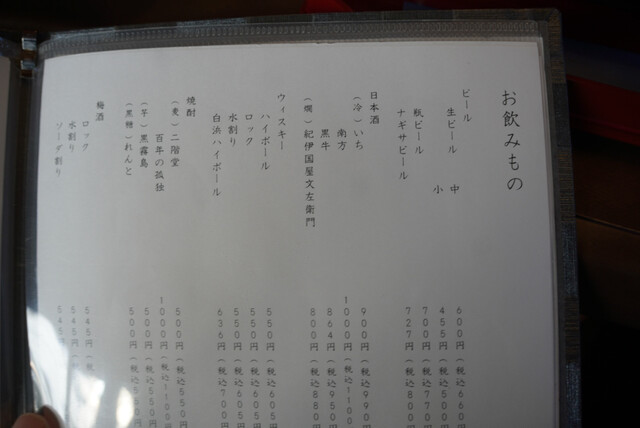 お飲みもの
ビール
生ビール 中 600円(税込660
小 455円(税込500
瓶ビール 700円(税込770
ナギサビール 727円(税込800
日本酒
(冷)いち 900円(税込990
南方 1000円(税込1100
黒牛 864円(税込950
(燗)紀伊国屋文左衛門 800円(税込880
ウィスキー
ハイボール 550円(税込605
ロック 550円(税込605
水割り 550円(税込605
白浜ハイボール 636円(税込700
焼酎
(麦)二階堂 500円(税込550
百年の孤独 1000円(税込1100
(芋)黒霧島 500円(税込550
(黒糖)れんと 500円(税込550
梅酒
ロック 545円(税
水割り 545円(税
ソーダ割り 545円